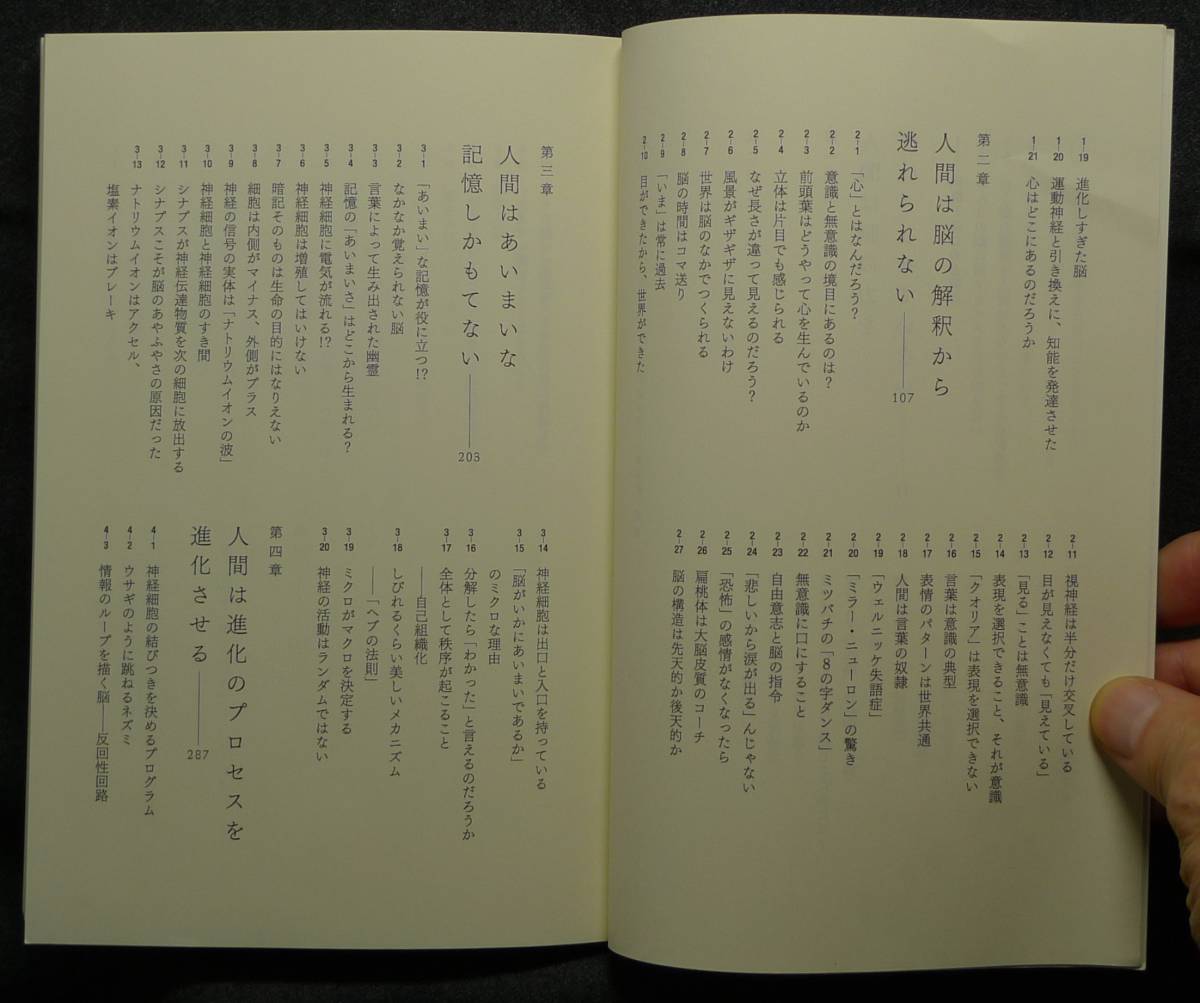 1–19 進化しすぎた脳
1–20 運動神経と引き換えに、知能を発達させた
1–21 心はどこにあるのだろうか
第二章
人間は脳の解釈から
逃れられない――― 107
2–1 「心」とはなんだろう?
2–2 意識と無意識の境目にあるのは?
2–3 前頭葉はどうやって心を生んでいるのか
2–4 立体は片目でも感じられる
2–5 なぜ長さが違って見えるのだろう?
2–6 風景がギザギザに見えないわけ
2–7 世界は脳のなかでつくられる
2–8 脳の時間はコマ送り
2–9 「いま」は常に過去
2–10 目ができたから、世界ができた
2–11 視神経は半分だけ交叉している
2–12 目が見えなくても「見えている」
2–13 「見る」ことは無意識
2–14 表現を選択できること、それが意識
2–15 「クオリア」は表現を選択できない
2–16 言葉は意識の典型
2–17 表情のパターンは世界共通
2–18 人間は言葉の奴隷
2–19 「ウェルニッケ失語症」
2–20 「ミラー・ニューロン」の驚き
2–21 ミツバチの「8の字ダンス」
2–22 無意識に口にすること
2–23 自由意志と脳の指令
2–24 「悲しいから涙が出る」んじゃない
2–25 「恐怖」の感情がなくなったら
2–26 扁桃体は大脳皮質のコーチ
2–27 脳の構造は先天的か後天的か
第三章
人間はあいまいな
記憶しかもてない――― 203
3–1 「あいまい」な記憶が役に立つ!?
3–2 なかなか覚えられない脳
3–3 言葉によって生み出された幽霊
3–4 記憶の「あいまいさ」はどこから生まれる?
3–5 神経細胞に電気が流れる!?
3–6 神経細胞は増殖してはいけない
3–7 暗記そのものは生命の目的にはなりえない
3–8 細胞は内側がマイナス、外側がプラス
3–9 神経の信号の実体は「ナトリウムイオンの波」
3–10 神経細胞と神経細胞のすき間
3–11 シナプスが神経伝達物質を次の細胞に放出する
3–12 シナプスこそが脳のあやふやさの原因だった
3–13 ナトリウムイオンはアクセル、
塩素イオンはブレーキ
3–14 神経細胞は出口と入口を持っている
3–15 「脳がいかにあいまいであるか」
のミクロな理由
3–16 分解したら「わかった」と言えるのだろうか
3–17 全体として秩序が起こること
――自己組織化
3–18 しびれるくらい美しいメカニズム
――「ヘブの法則」
3–19 ミクロがマクロを決定する
3–20 神経の活動はランダムではない
第四章
人間は進化のプロセスを
進化させる――― 287
4–1 神経細胞の結びつきを決めるプログラム
4–2 ウサギのように跳ねるネズミ
4–3 情報のループを描く脳――反回性回路